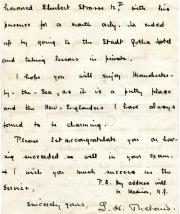 honored Schubert Strasse No 7 with his
presence for a month only. He ended
up by going to the Stadt Gotha Hotel
and taking lessons in private.
I hope you will enjoy Manchester-
by-the-Sea, as it is a pretty place
and the New-Englanders I have always
found to be charming.
Please let me congratulate you on hav-
ing succeeded so well in your exam.
& I wish you much success in the
Service.
P.S. My address will
be Madison, N.J.
Sincerely yours,